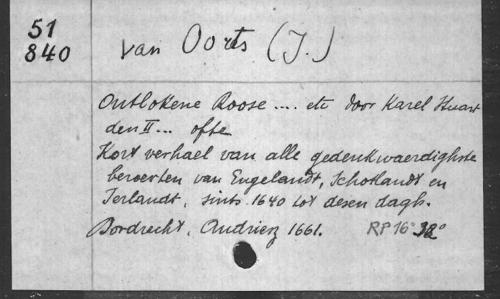 51
840
van Oorts (J.)
Ontlokene Roose .... etc door Karel Stuart
den II ... ofte
Kort verhael van alle gedenkwaerdighste
beroerten van Engelandt, Schotlandt en
Ierlandt, sints 1640 tot desen dagh.
Dordrecht, Andriesz 1661. RP 16°